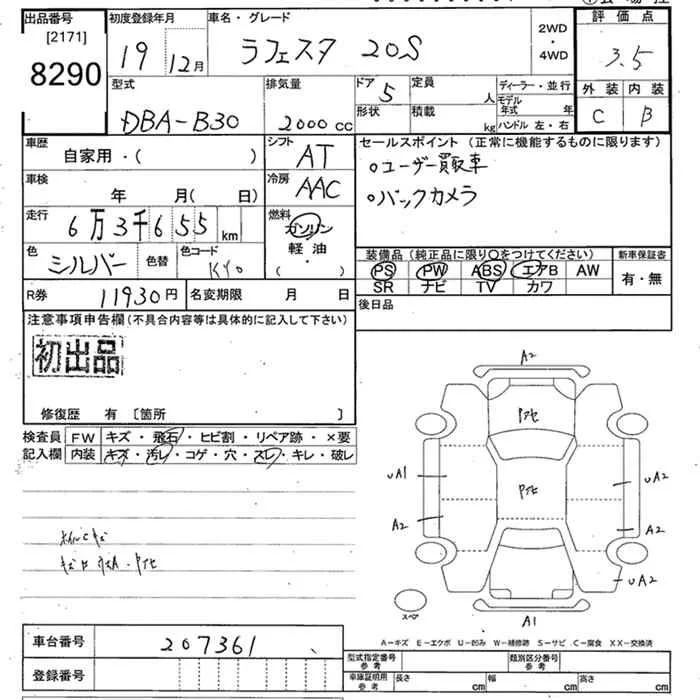 出品番号
[2171]
8290
初度登録年月
19 12月
車名・グレード
ラフェスタ 20S
2WD
・
4WD
評価点
3.5
外装 内装
C B
型式
DBA-B30
排気量
2000cc
ドア 5
形状
定員 人
積載 kg
ディーラー・並行
モデル年式 年
ハンドル 左・右
車歴
自家用・( )
シフト
AT
車検
年 月( 日)
冷房
AAC
走行
6万3千655km
燃料
ガソリン
軽・油
( ・ )
色
シルバー
色替
色コード
KY0
R券 11930円
名変期限 月 日
セールスポイント (正常に機能するものに限ります)
○ユーザー買取車
○バックカメラ
装備品 (純正品に限り○をつけてください)
PS PW ABS エアB AW
SR ナビ TV カワ
新車保証書
有・無
後日品
注意事項申告欄 (不具合内容等は具体的に記入して下さい)
初出品
修復歴 有 〔箇所 〕
検査員記入欄
FW キズ・飛石・ヒビ割・リペア跡・×要
内装 キズ・汚レ・コゲ・穴・スレ・キレ・破レ
A2
UA1
A2
UA2
A2
UA2
A1
スペア
A-キズ E-エクボ U-凹み W-補修跡 S-サビ C-腐食 XX-交換済
車台番号 207361
登録番号
型式指定番号 参考
類別区分番号 参考
車庫証明用 参考
長さ cm
幅 cm
高さ cm